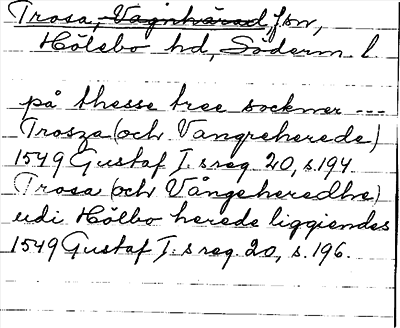 Trosa, Vagnhärad, fsn,
Hölebo hd, Söderm l.
på thesse tree socknver ---
Trosza (och Vangreherede)
1549 Gustaf I:s reg. 20, s. 194.
Trosa (och Vångeheredhe)
udi Hölbo herede liggiendes
1549 Gustaf I:s reg. 20, s. 196.